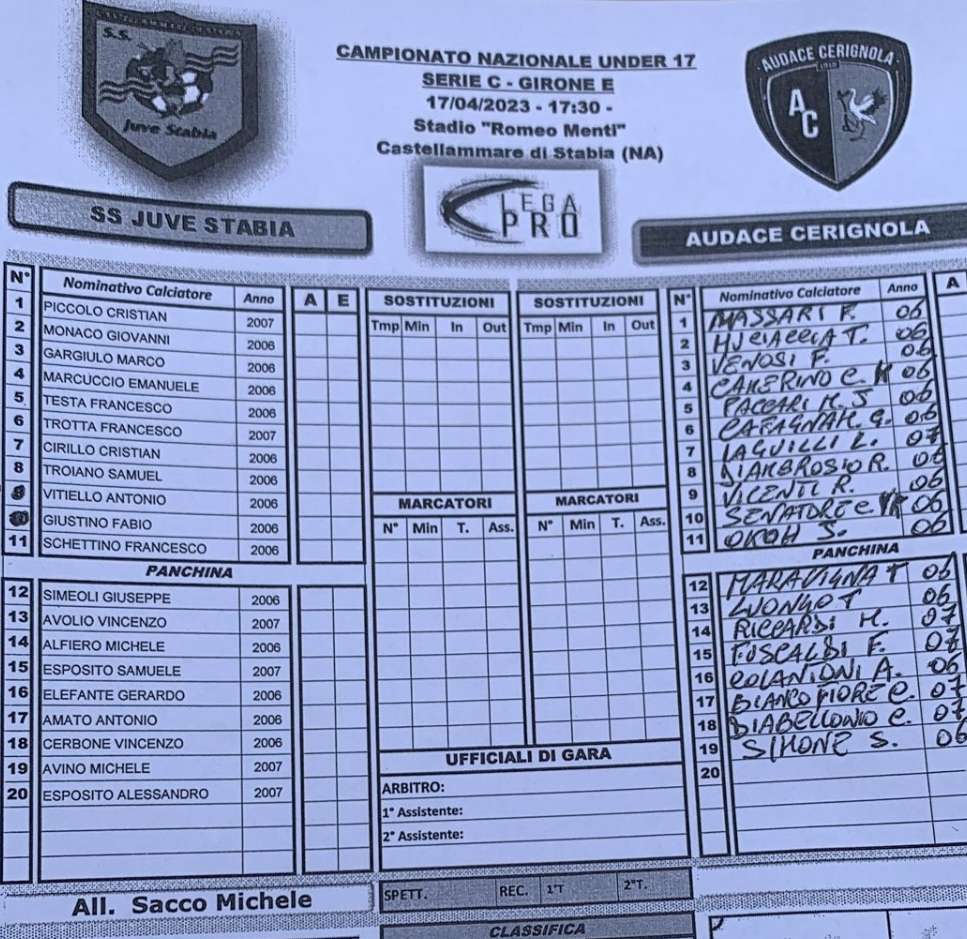 S.S.
Juve Stabia
CAMPIONATO NAZIONALE UNDER 17
SERIE C - GIRONE E
17/04/2023 - 17:30 -
Stadio "Romeo Menti"
Castellammare di Stabia (NA)
AUDACE CERIGNOLA
AC
LEGA
PRO
SS JUVE STABIA
AUDACE CERIGNOLA
N° Nominativo Calciatore Anno A E
1 PICCOLO CRISTIAN 2007
2 MONACO GIOVANNI 2006
3 GARGIULO MARCO 2006
4 MARCUCCIO EMANUELE 2006
5 TESTA FRANCESCO 2006
6 TROTTA FRANCESCO 2007
7 CIRILLO CRISTIAN 2006
8 TROIANO SAMUEL 2006
VITIELLO ANTONIO 2006
GIUSTINO FABIO 2006
11 SCHETTINO FRANCESCO 2006
PANCHINA
12 SIMEOLI GIUSEPPE 2006
13 AVOLIO VINCENZO 2007
14 ALFIERO MICHELE 2006
15 ESPOSITO SAMUELE 2007
16 ELEFANTE GERARDO 2006
17 AMATO ANTONIO 2006
18 CERBONE VINCENZO 2006
19 AVINO MICHELE 2007
20 ESPOSITO ALESSANDRO 2007
All. Sacco Michele
SOSTITUZIONI SOSTITUZIONI
Tmp Min In Out Tmp Min In Out
MARCATORI MARCATORI
N° Min T. Ass. N° Min T. Ass.
UFFICIALI DI GARA
ARBITRO:
1° Assistente:
2° Assistente:
SPETT. REC. 1°T 2°T.
CLASSIFICA
N° Nominativo Calciatore Anno A
1 MASSARI F. 06
2 T. 06
3 VENOSI F. 06
4 CAMERINO C. 06
5 06
6 G. 06
7 IAGUILLI L. 07
8 DIAMBROSIO R. 06
9 VICENTI R. 06
10 SENATORE C. 06
11 OKOH S. 06
PANCHINA
12 MARAVIGNA T 06
13 LUONGO T 06
14 RICCARDI M. 07
15 FUSCALDI F. 07
16 COLANIONI A. 06
17 BIANCO FIORE C. 07
18 DIABELLONIO C. 07
19 SIMONE S. 06
20